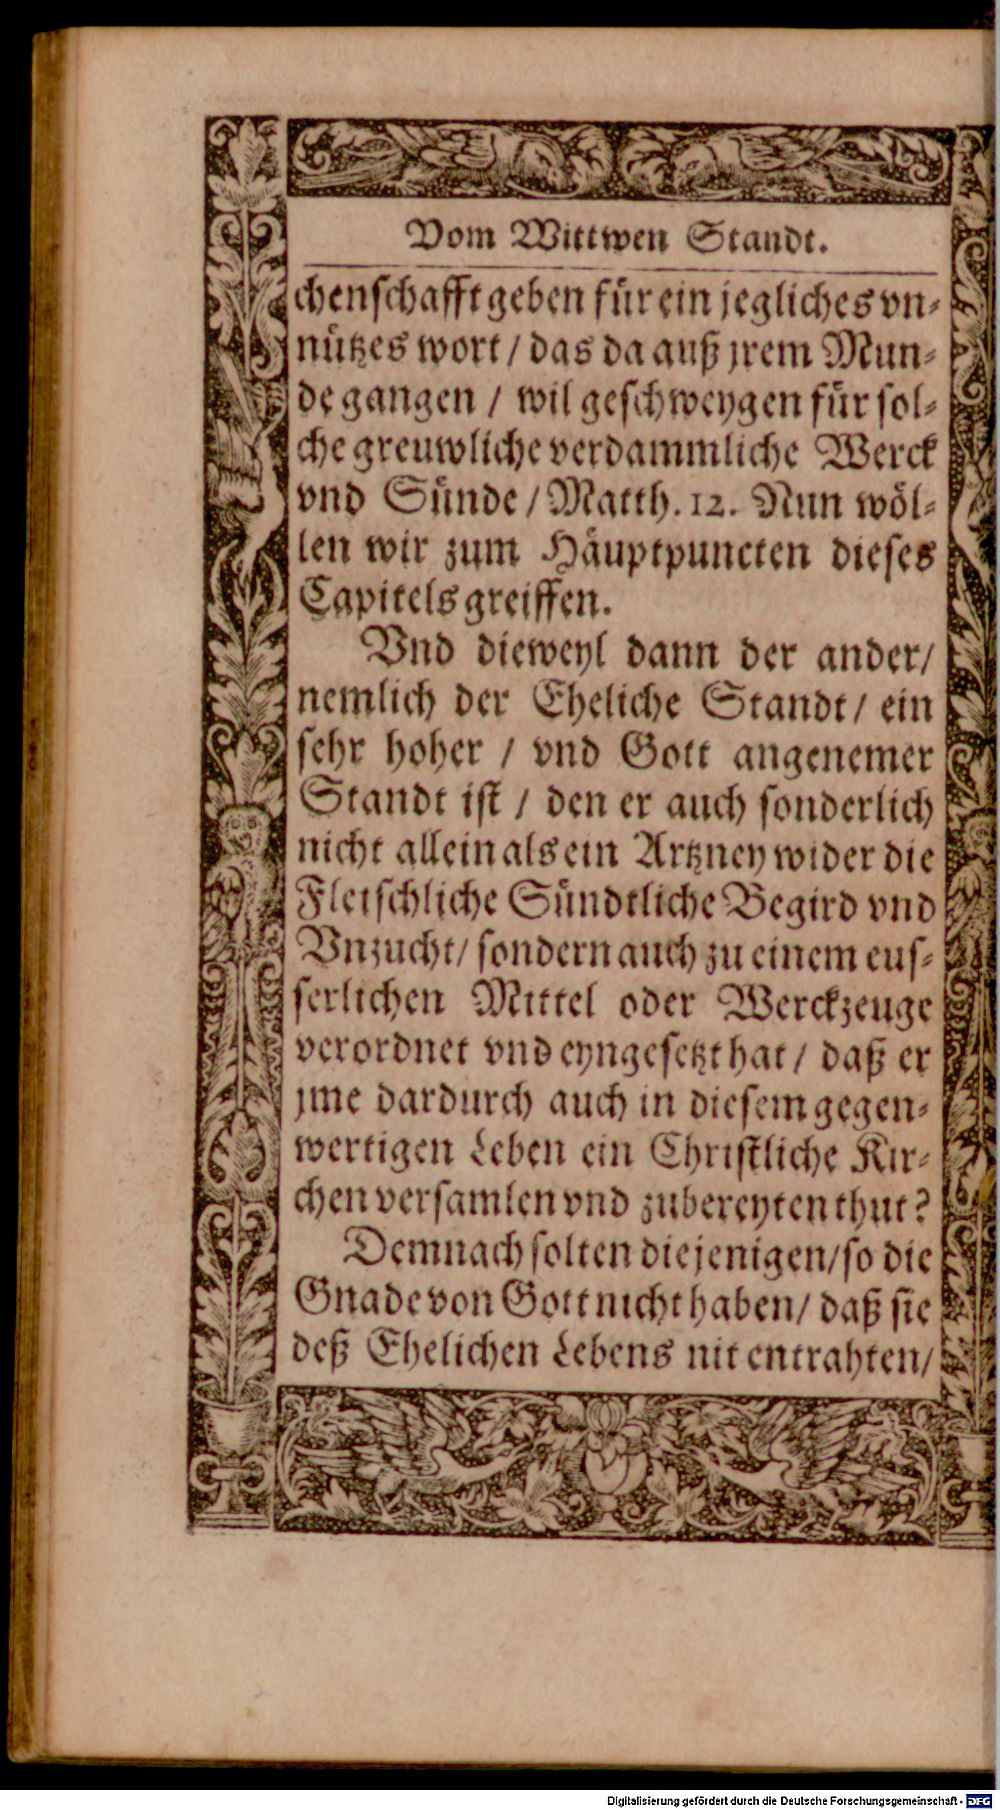 Vom Wittwen Standt.
chenschafft geben für ein jegliches vn-
nützes wort / das da auß jrem Mun-
de gangen / wil geschweygen für sol-
che greuwliche verdammliche Werck
vnd Sünde / Matth. 12. Nun wöl-
len wir zum Häuptpuncten dieses
Capitels greiffen.
Vnd dieweyl dann der ander /
nemlich der Eheliche Standt / ein
sehr hoher / vnd Gott angenemer
Standt ist / den er auch sonderlich
nicht allein als ein Artzney wider die
Fleischliche Sündtliche Begird vnd
Vnzucht / sondern auch zu einem eus-
serlichen Mittel oder Werckzeuge
verordnet vnd eyngesetzt hat / daß er
jme dardurch auch in diesem gegen-
wertigen Leben ein Christliche Kir-
chen versamlen vnd zubereyten thut?
Demnach solten diejenigen / so die
Gnade von Gott nicht haben / daß sie
deß Ehelichen Lebens nit entrahten /
Digitalisierung gefördert durch die Deutsche Forschungsgemeinschaft - DFG